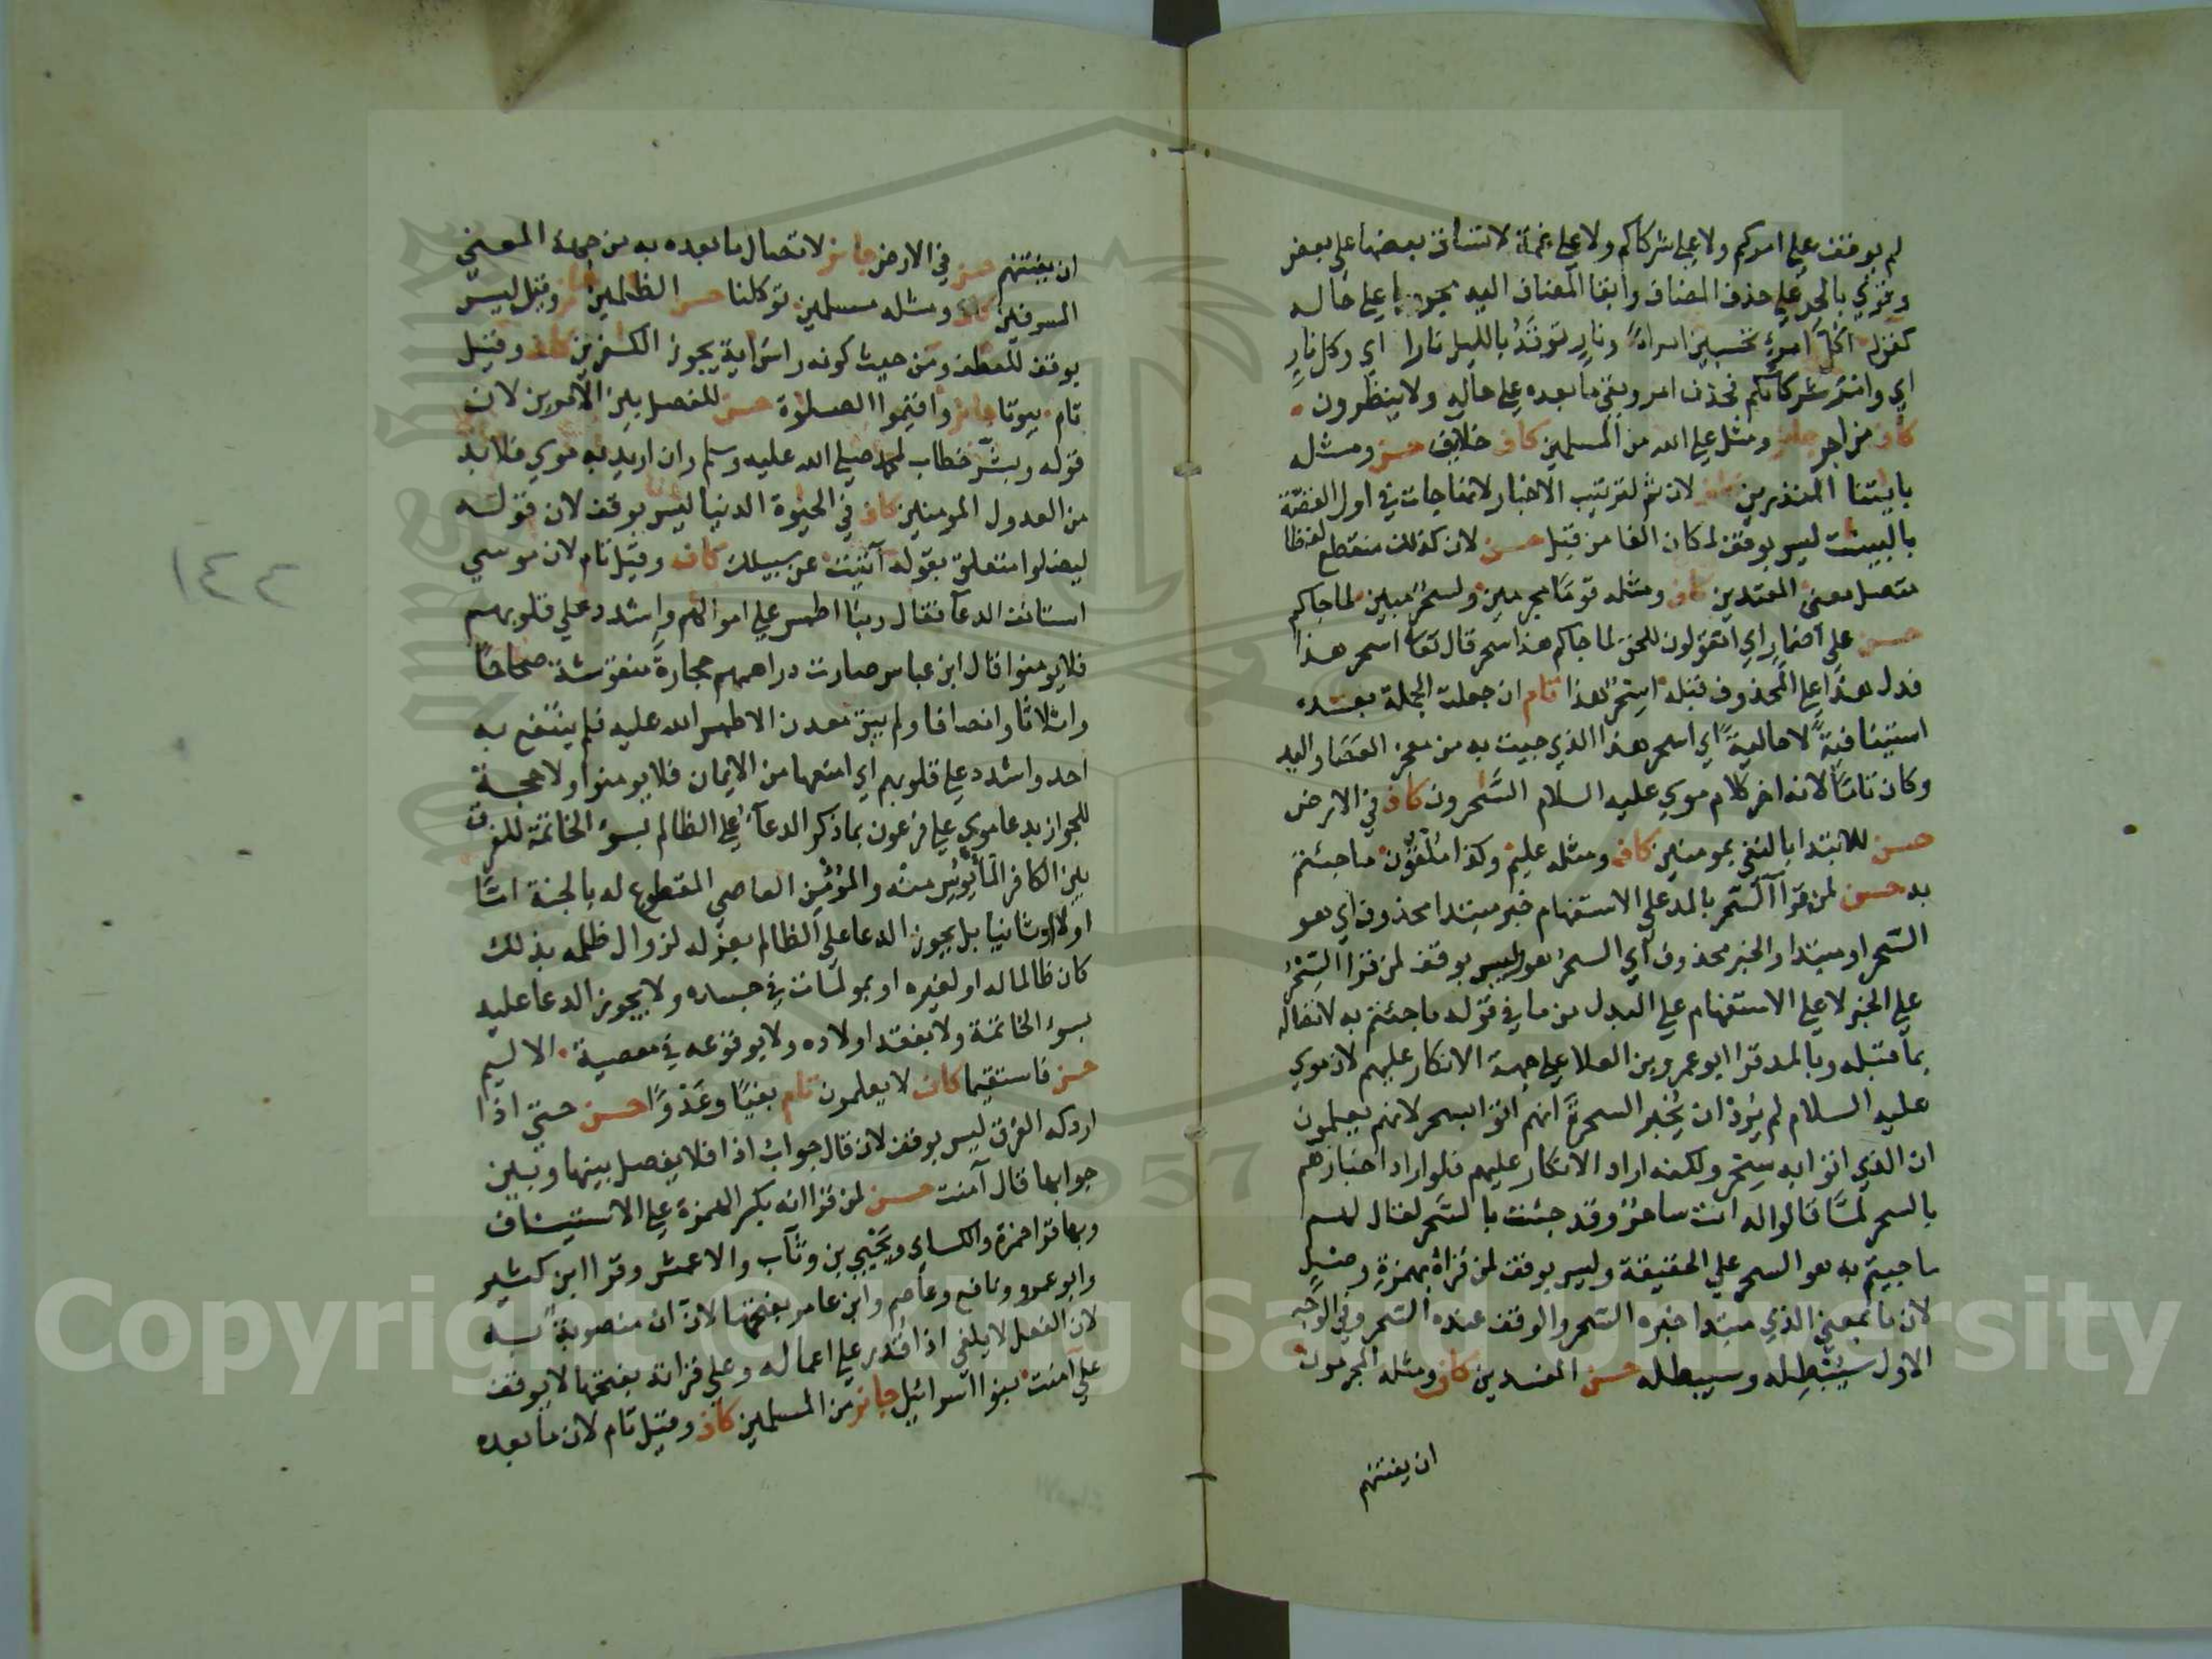 لم يوقف على امركم ولا على شركاكم ولا على غمة لاتساق بعضها على بعض
وقري بالجر على حذف المضاف وابقا المضاف اليه مجرورا على حاله
كقوله اكل امرئ تحسبين امراةً ونارٍ توقَّدُ بالليل نارا اي وكل نارٍ
اي وامر شركائكم فحذف امر وبقي ما بعده على حاله ولا ينظرون
كاف من اجر جايز ومثل على الله من المسلمين كاف خلايف حسن ومثله
باياتنا المنذرين لان ثم لترتيب الاخبار لانها جات في اول القصة
بالبينت ليس بوقف لمكان الفا من قبل حسن لان كذلك منقطع لفظا
متصل معنى المعتدين كاف ومثله قومًا مجرمين ولسحرٌ مبين لما جاكم
حسن على اضمار اي اتقولون للحق لما جاكم هذا سحر قال تعا اسحر هذا
فدل هذا على المحذوف قبله اسحرٌ هذا تام ان جعلت الجملة بعده
استينافيةً لا حاليةً اي اسحر هذا الذي جيت به من معجز العصا واليد
وكان تامًا لانه اخر كلام موسي عليه السلام السَّحرون كاف في الارض
حسن للابتدا بالنفي بمومنين كاف ومثله عليم وكذا ملقون ما جئتم
به حسن لمن قرا آلسّحر بالمد على الاستفهام خبر مبتدا محذوف اي هو
السّحر او مبتدا والخبر محذوف اي السحرُ هو وليس بوقف لمن قرا السِّحْرُ
على الخبر لا على الاستفهام على البدل من ما في قوله ما جئتم به لاتصاله
بما قبله وبالمد قرا ابو عمرو بن العلا على جهة الانكار عليهم لان موسي
عليه السلام لم يُرِدْ ان يُخبر السحرةَ انهم اتوا بسحر لانهم يعلمون
ان الذي اتوا به سِحْر ولكنه اراد الانكار عليهم فلو اراد اخبارهم
بالسحر لمَّا قالوا له انت ساحرٌ وقد جئت بالسّحر لقال لهم
ما جيتم به هو السحر على الحقيقة وليس بوقف لمن قراه بهمزة وصلٍ
لان ما بمعني الذي مبتدا خبره السّحر والوقف عنده السّحر وفي الوجه
الاول سيُبْطِله وسيبطله حسن المفسدين كاف ومثله المجرمون
ان يفتنهم
ان يفتنهم حسن في الارض جايز لاتصال ما بعده به من جهة المعني
المسرفين كاف ومثله مسلمين توكلنا حسن الظلمين جايز وقيل ليس
بوقف للعطف ومن حيث كونه راس اية يجوز الكفرين كاف وقيل
تام بيوتا جايز واقيموا الصلوة حسن للفصل بين الامرين لان
قوله وبشّر خطاب لمحمد صلى الله عليه وسلم وان اريد به موسي فلا بد
من العدول المومنين كاف في الحيوة الدنيا ليس بوقف لان قوله
ليضلوا متعلق بقوله آتيت عن سبيلك كاف وقيل تام لان موسي
استانف الدعآ فقال ربنا اطمس على اموالهم واشدد على قلوبهم
فلا يومنوا قال ابن عباس صارت دراهمهم حجارةً منقوشة صحاحًا
واثلاثا وانصافا ولم يبق معدن الا طمس الله عليه فلم ينتفع به
احد واشدد على قلوبهم اي امنعها من الايمان فلا يومنوا ولا حجة
للجواز بدعا موسي على فرعون بما ذكر الدعآء على الظالم بسوء الخاتمة للفرق
بين الكافر المأيوس منه والمؤمن العاصي المقطوع له بالجنة امّا
اولا او ثانيا بل يجوز الدعا على الظالم بعزله لزوال ظلمه بذلك
كان ظالما له او لغيره او بمولمات في جسده ولا يجوز الدعا عليه
بسوء الخاتمة ولا بفقد اولاده ولا بوقوعه في معصية الاليم
حسن فاستقيما كاف لا يعلمون تام بغيًا وعَدْوًا حسن حتي اذا
ادركه الغرق ليس بوقف لان قال جواب اذا فلا يفصل بينها وبين
جوابها قال آمنت حسن لمن قرا انه بكسر الهمزة على الاستيناف
وبها قرا حمزة والكساي ويَحْيى بن وثَّاب والاعمش وقرا ابن كثير
وابو عمرو ونافع وعاصم وابن عامر بفتحها لانّ ان منصوبةً به
لان الفعل لا يلغي اذا قُدر على اعماله وعلى قراته بفتحها لا يوقف
على آمنت بنوا اسرائيل جايز من المسلمين كاف وقيل تام لان ما بعده
١٤٢
Copyright © King Saud University
1957